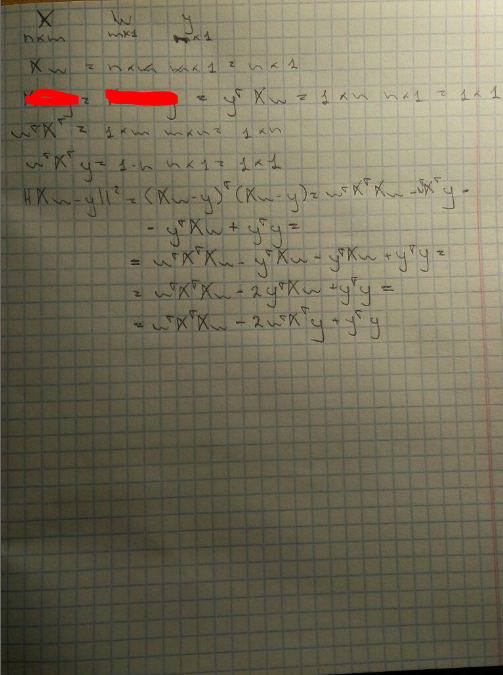 X w y
n×m m×1 n×1
Xw = n×m m×1 = n×1
y = y = yᵀXw = 1×n n×1 = 1×1
wᵀXᵀ = 1×m m×n = 1×n
wᵀXᵀy = 1·n n×1 = 1×1
||Xw-y||² = (Xw-y)ᵀ(Xw-y) = wᵀXᵀXw - wᵀXᵀy -
- yᵀXw + yᵀy =
= wᵀXᵀXw - yᵀXw - yᵀXw + yᵀy =
= wᵀXᵀXw - 2yᵀXw + yᵀy =
= wᵀXᵀXw - 2wᵀXᵀy + yᵀy